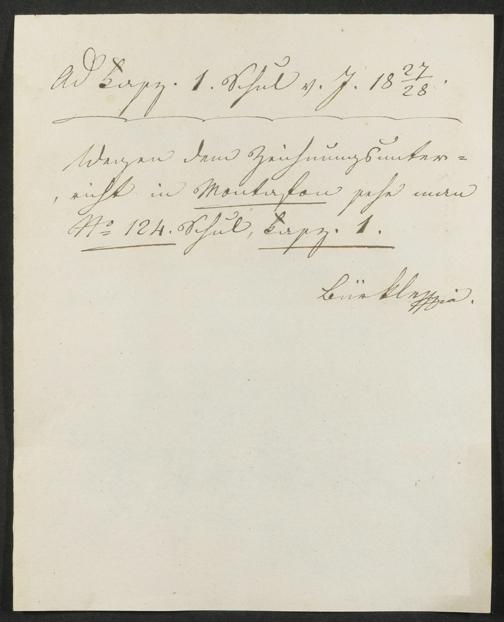 Ad Fasz. 1. Schul v. J. 18 27/28.
Wegen dem Zeichnungsunter=
richt in Montafon sehe man
No 124. Schul, Fasz. 1.
Bürkle